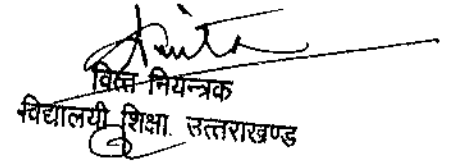 वित्त नियन्त्रक
विद्यालयी शिक्षा उत्तराखण्ड